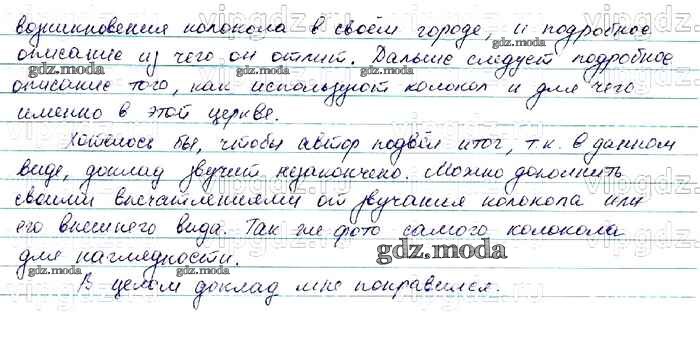 возникновения колокола в своём городе, и подробное
описание из чего он отлит. Дальше следует подробное
gdz.moda gdz.moda
описание того, как используют колокол и для чего
именно в этой церкве.
Хотелось бы, чтобы автор подвёл итог, т.к. в данном
виде, доклад звучит незакончено. Можно дополнить
своими впечатлениями от звучания колокола или
его внешнего вида. Так же фото самого колокола
gdz.moda
для наглядности.
gdz.moda gdz.moda
В целом доклад мне понравился.